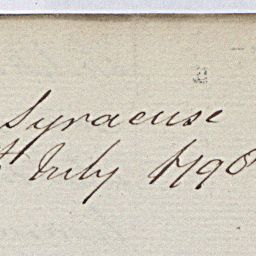 Syracuse
July 1798